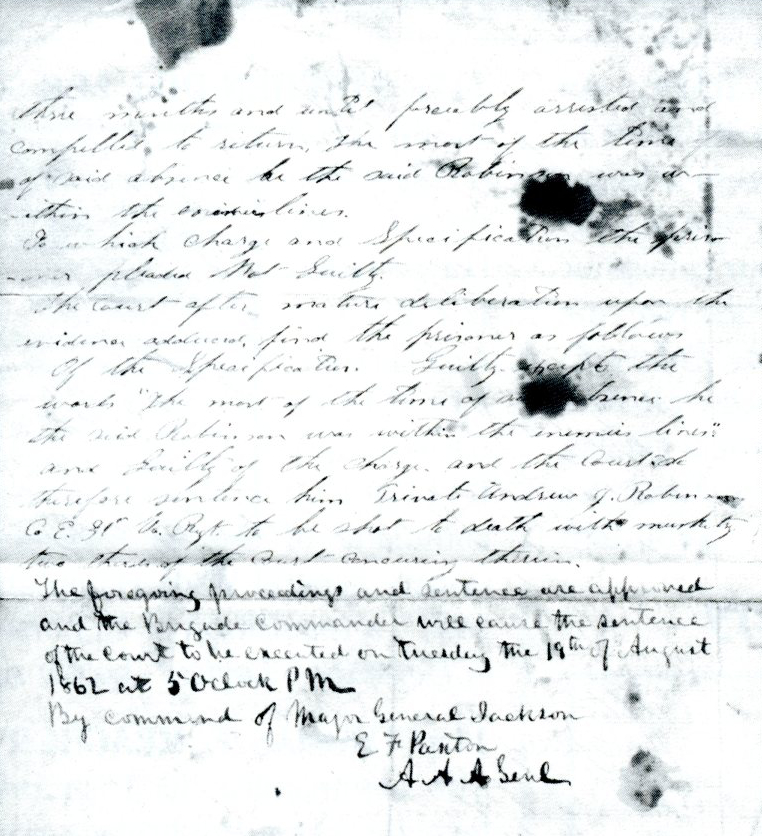 three months and until forcibly arrested and
compelled to return, The most of the time
of said absence he the said Robinson was w-
-ithin the enemies lines.
To which Charge and Specification the priso
-ner pleaded Not Guilty.
The Court after mature deliberation upon the
evidence adduced, find the prisoner as follows
Of the Specification. Guilty except the
words "The most of the time of said absence he
the said Robinson was within the enemies lines"
and Guilty of the Charge. and the Court do
therefore sentence him Private Andrew J. Robinson
Co E. 31st Va. Rgt. to be shot to death with musketry
two thirds of the Court concuring therein.
The foregoing proceedings and sentence are approved
and the Brigade Commander will cause the sentence
of the court to be executed on Tuesday the 19th of August
1862 at 5 Oclock PM
By command of Major General Jackson
E F Paxton
A A A Genl